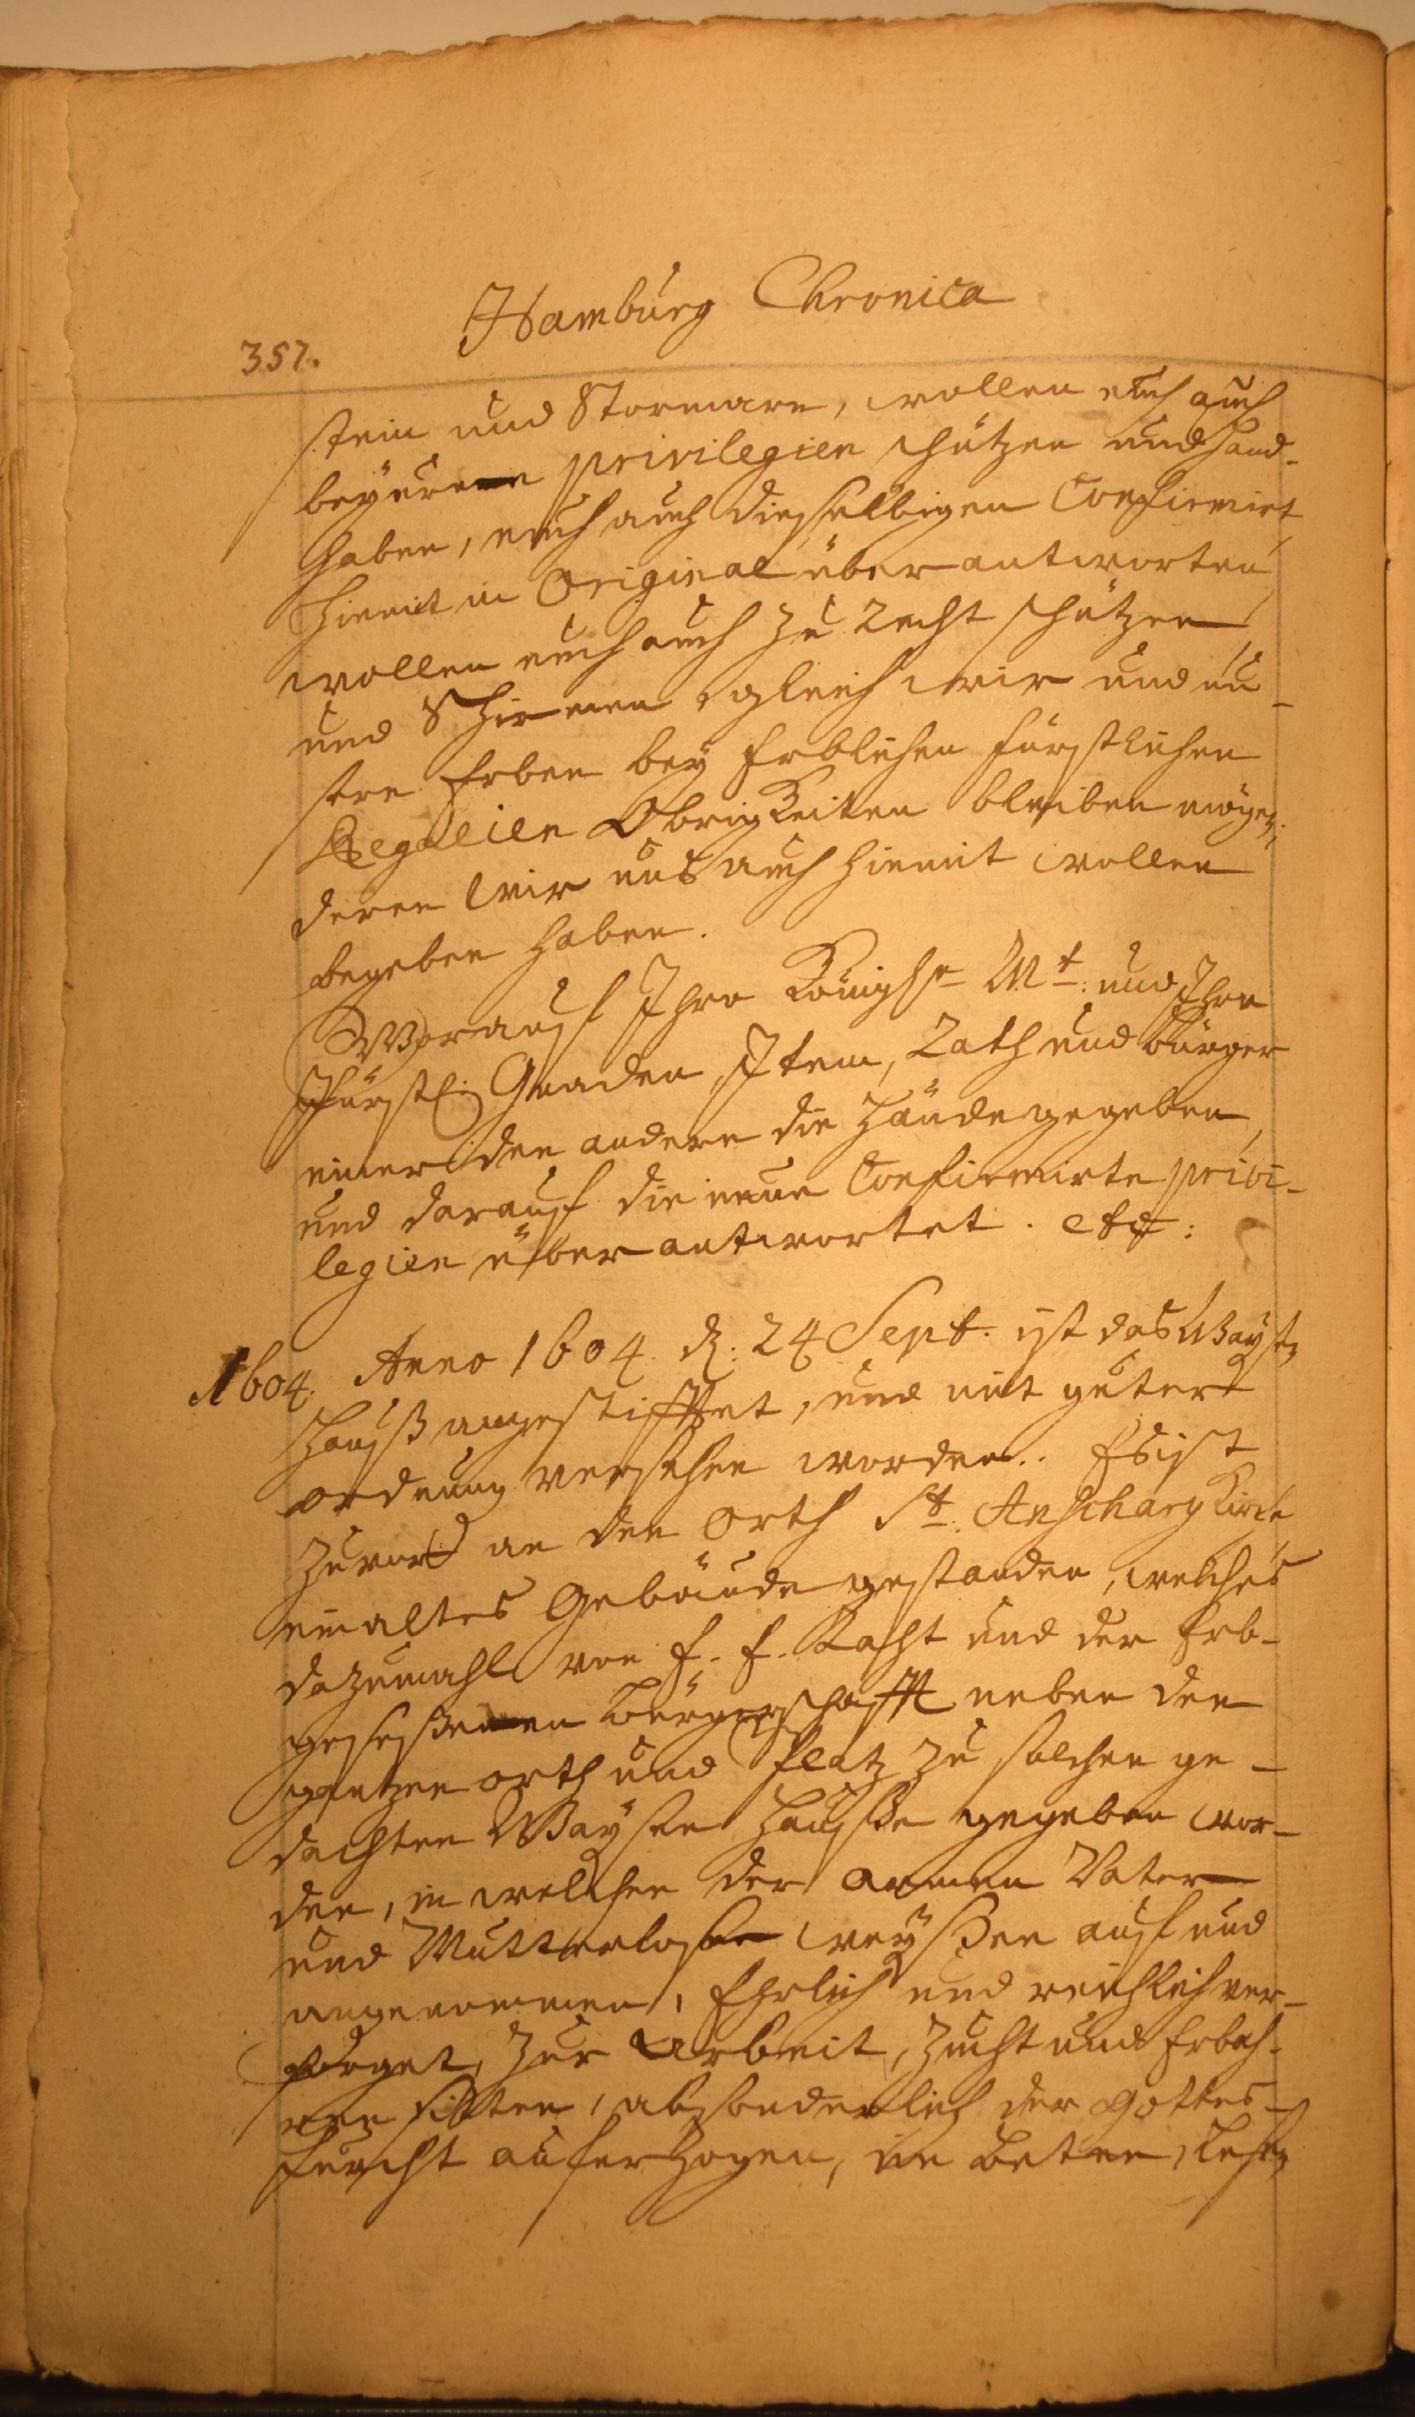 Hamburg Chronica
357.
stein und Stormarn, wollen euch auch
bey euren privilegien schützen und hand-
haben, euch auch dieselbigen Confirmirt
hiemit in Original überantworten,
wollen euch auch zu Recht schützen
und Schirmen, gleich wir und un-
sere Erben bey Erblichen fürstlichen
Regalien Obrigkeiten bleiben mögen,
deren wir uns auch hiemit wollen
begeben haben.
Worauf Ihro Königl. Mt: und Ihre
Fürstl: Gnaden, Item, Rath und Bürger
einer den andern die Hände gegeben,
und darauf die neue Confirmirte privi-
legien überantwortet. etc:
1604. Anno 1604. d. 24 Sept. ist das Waysen
Hauß angestifftet, und mit guter
ordnung versehen worden. Es ist
zuvor an den Orth St. Anschary Kirche
ein altes Gebäude gestanden, welches
dazumahl von E. E. Raht und der Erb-
gesessenen Bürgerschafft neben den
gantzen orth und Platz zu solchen ge-
dachten Waysen Hausse gegeben wor-
den, in welchen der armen Vater
und Mutterlosen Weysen auf und
angenommen, Ehrlich und reichlich ver-
sorget, zur Arbeit, Zucht und Erbah-
ren sitten, absonderlich der Gottes-
furcht auferzogen, im beten, Lesen